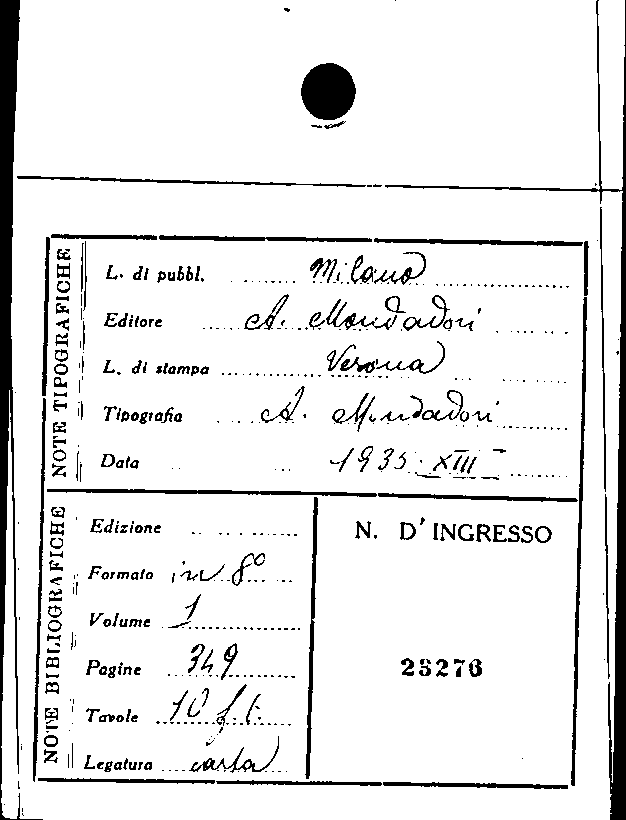 NOTE TIPOGRAFICHE
L. di pubbl. Milano
Editore A. Mondadori
L. di stampa Verona
Tipografia A. Mondadori
Data 1935 · XIII
NOTE BIBLIOGRAFICHE
Edizione
Formato in 8º
Volume 1
Pagine 349
Tavole 10 f.t.
Legatura carta
N. D'INGRESSO
23276